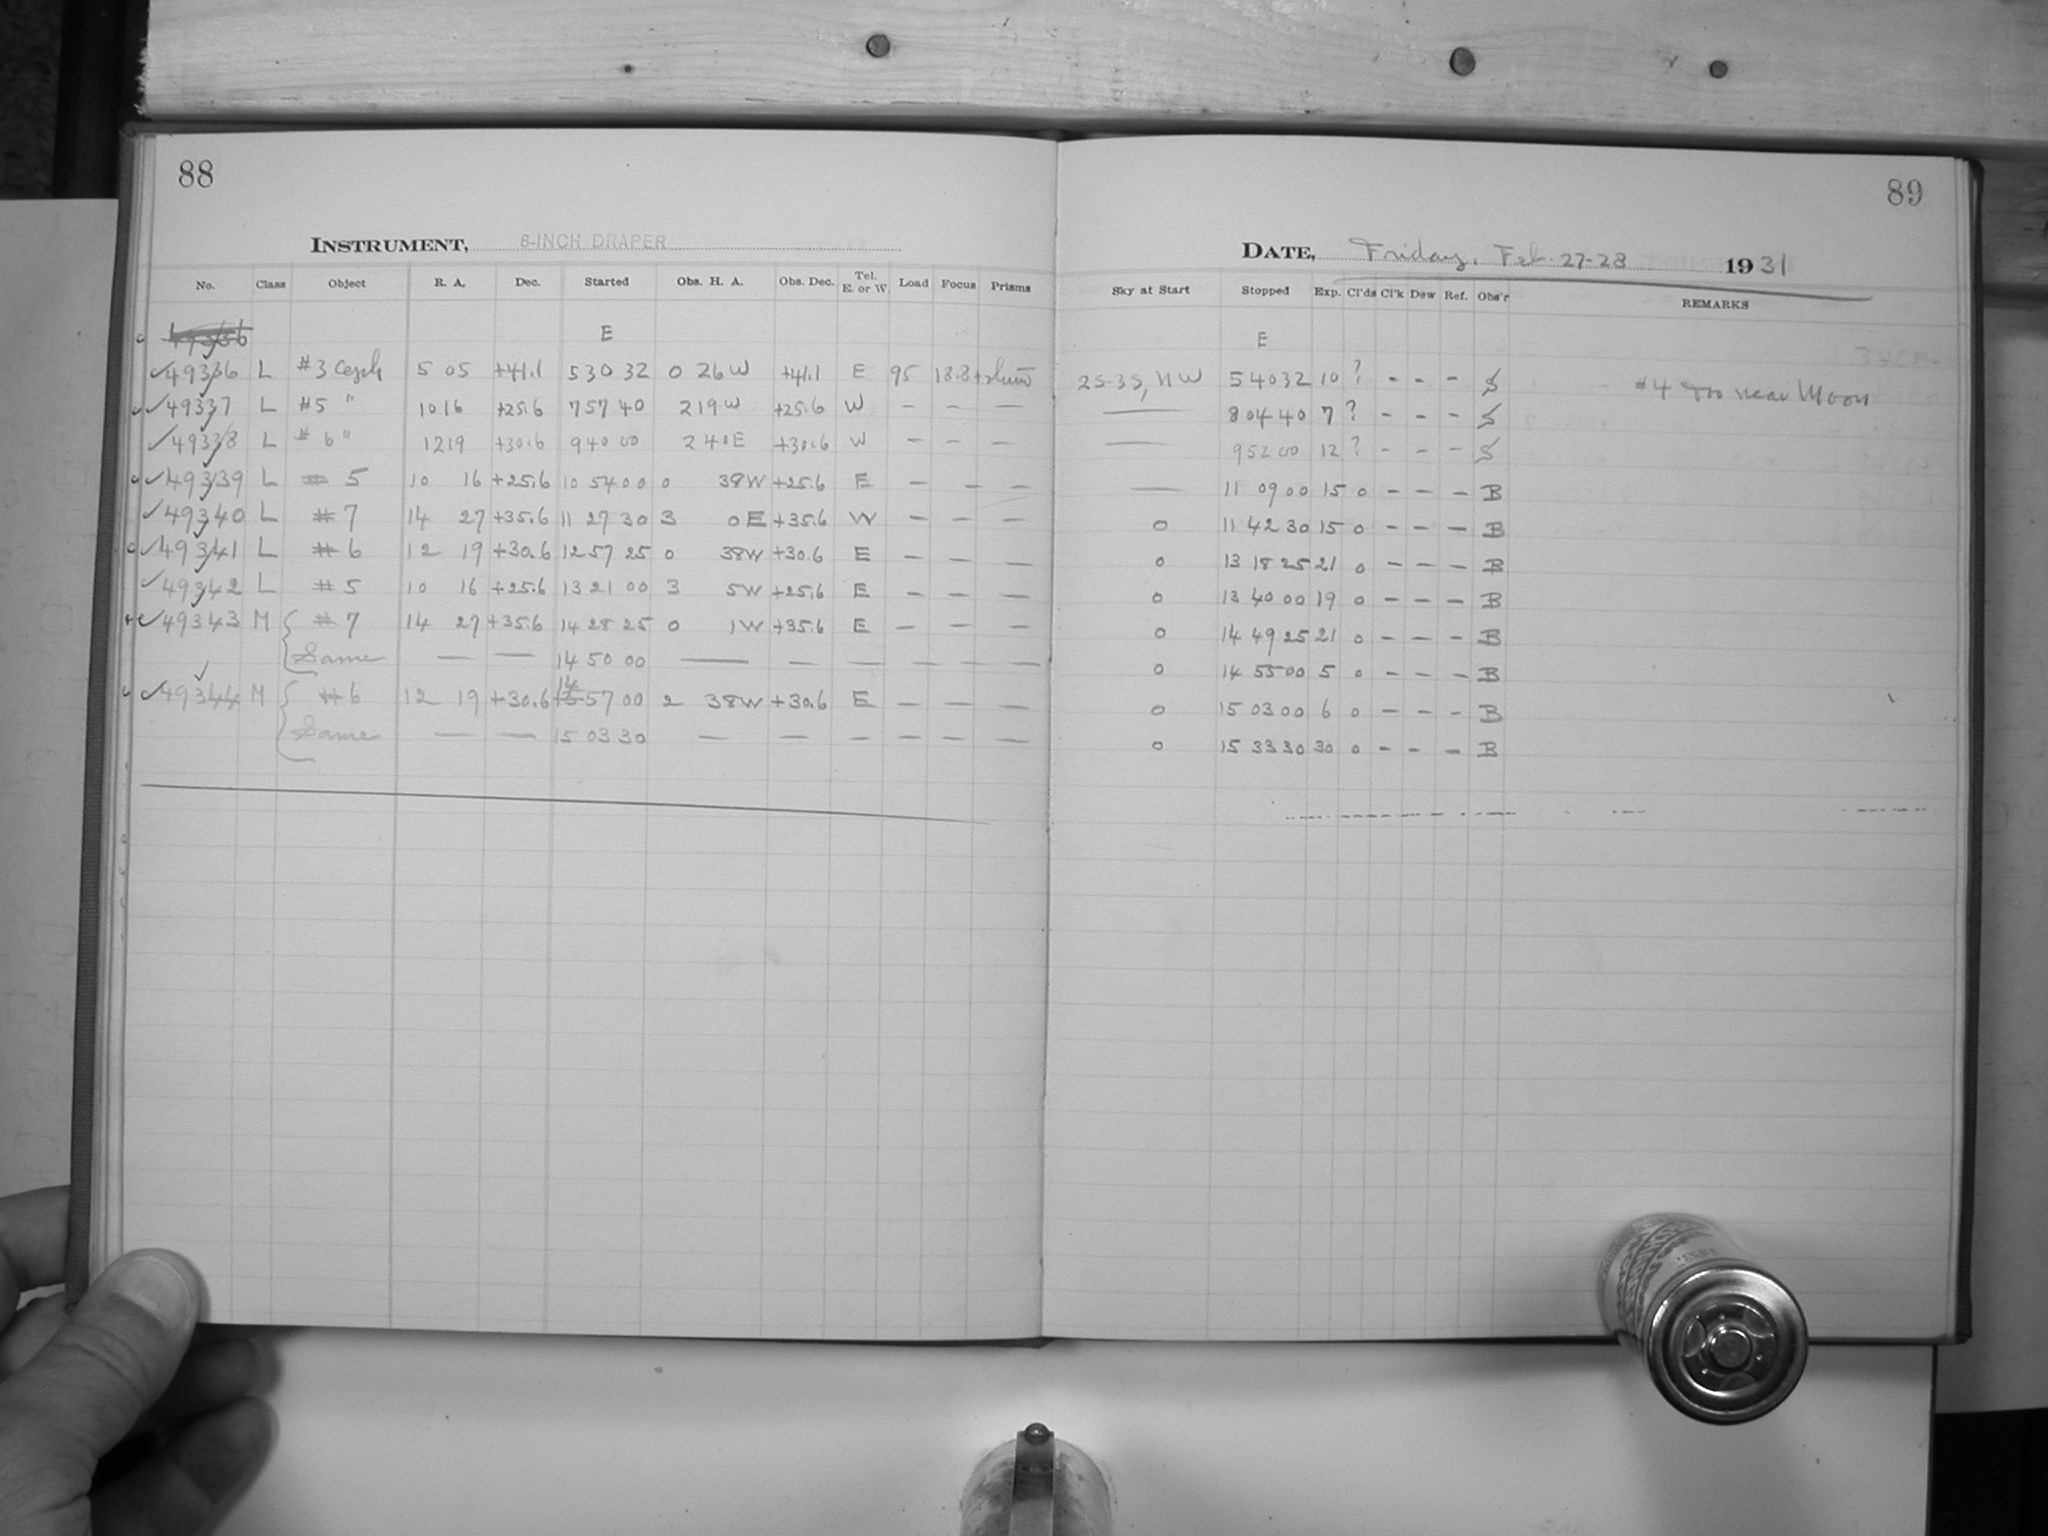 88
INSTRUMENT, 6-INCH DRAPER
No. Class Object R. A. Dec. Started Obs. H. A. Obs. Dec. Tel. E. or W. Load Focus Prisms
49336
E
49336 L #3 Ceph 5 05 +41.1 5 30 32 0 26 W +41.1 E 95 18.8
49337 L #5 " 10 16 +25.6 7 57 40 2 19 W +25.6 W — — —
49338 L #6 " 12 19 +30.6 9 40 00 2 40 E +30.6 W — — —
49339 L #5 10 16 +25.6 10 54 00 0 38 W +25.6 E — — —
49340 L #7 14 27 +35.6 11 27 30 3 0 E +35.6 W — — —
49341 L #6 12 19 +30.6 12 57 25 0 38 W +30.6 E — — —
49342 L #5 10 16 +25.6 13 21 00 3 5 W +25.6 E — — —
49343 M { #7 14 27 +35.6 14 28 25 0 1 W +35.6 E — — —
Same — — 14 50 00 — — — — — —
49344 M { #6 12 19 +30.6 14 57 00 2 38 W +30.6 E — — —
Same — — 15 03 30 — — — — — —
89
DATE, Friday, Feb. 27-28 1931
Sky at Start Stopped Exp. Cl'ds Cl'k Dew Ref. Obs'r REMARKS
E
2S-3S, NW 5 40 32 10 ? - - - S #4 too near Moon
— 8 04 40 7 ? - - - S
— 9 52 00 12 ? - - - S
— 11 09 00 15 0 - - - B
0 11 42 30 15 0 - - - B
0 13 18 25 21 0 - - - B
0 13 40 00 19 0 - - - B
0 14 49 25 21 0 - - - B
0 14 55 00 5 0 - - - B
0 15 03 00 6 0 - - - B
0 15 33 30 30 0 - - - B